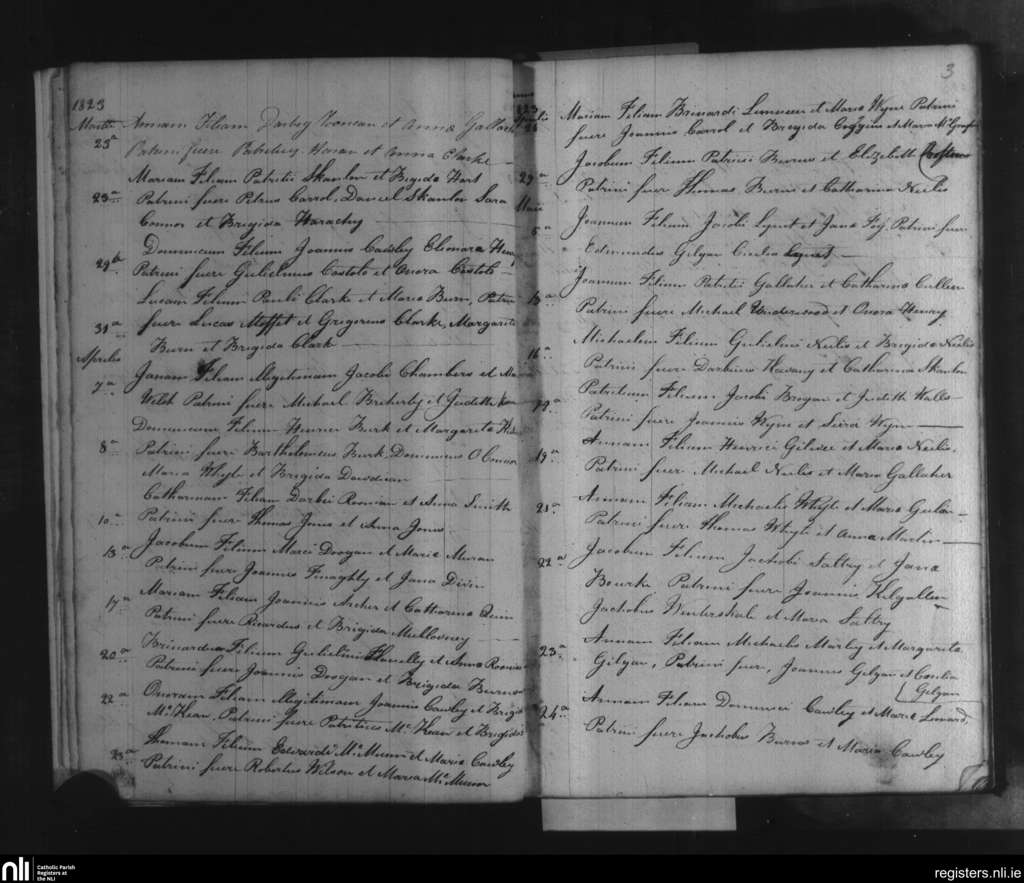 1823
Martii Annam Filiam Darby Noonan et Anna Gallach
23a Patrini fuere Patritius Horan et Anna Clarke
Mariam Filiam Patritii Skanlon et Brigida Hart
23a Patrini fuere Petrus Carrol, Daniel Skanlon Sara
Connor et Brigida Harachy
Dominicum Filium Joannis Cawley Elionora Henry
29a Patrini fuere Gulielmus Costolo et Onora Costolo
Lucam Filium Pauli Clarke et Maria Burn, Patrini
31a fuere Lucas Moffet et Gregorius Clarke, Margarita
Burn et Brigida Clark
Aprilis
7a Janam Filiam illegitimam Jacobi Chambers et
Welsh Patrini fuere Michael Breherty et Judith
Dominicum Filium Henrici Burk et Margarita
8a Patrini fuere Bartholomeus Burk Dominicus O Connor
Maria Whyte et Brigida Dowdican
Catharinam Filiam Darbei Roonian et Anna Smith
10a Patrini fuere Thomas Jones et Anna Jones
Jacobum Filium Marci Doogan et Maria Muran
13a Patrini fuere Joannis Finaghty et Jana Divin
Mariam Filiam Joannis Archer et Catharina Quin
17a Patrini fuere Ricardus et Brigida Mullowney
Brinardum Filium Gulielmi Flanelly et Anna
20a Patrini fuere Joannis Doogan et Brigida Burns
Onoram Filiam illegitimam Joannis Cawley et Brigida
22a Mc Kean, Patrini fuere Patritius Mc Kean et Brigida
Thomam Filium Edwardi Mc Munn et Maria Cawley
23a Patrini fuere Robertus Wilson et Maria Mc Munn
3
Mariam Filiam Brinardi Lunneen et Maria Wyne Patrini
fuere Joannis Carrol et Bregida Coggins et Maria
Jacobum Filium Patrici Burns et Elizabeth
29a Patrini fuere Thomas Burns et Catharina Neelis
Maii
5a Joannem Filium Jacobi Lynet et Jana Foy Patrini fuere
Edmundus Gilgan Cecilia Lynet
Joannem Filium Patritii Gallaher et Catharina Cullen
Patrini fuere Michael Underwood et Onora Henry
Michaelem Filium Gulielmi Neelis et Brigida Neelis
16a Patrini fuere Darbeius Heavey et Catharina Skanlon
Patritium Filium Jacobi Brogan et Judith Walls
19a Patrini fuere Joannis Wyne et Sera Wyne
Annam Filiam Henrici Gilder et Maria Neelis,
19a Patrini fuere Michael Neelis et Maria Gallaher
21a Annam Filiam Michaelis Whyte et Maria
Patrini fuere Thomas Whyte et Anna Martin
22a Jacobum Filium Jachobi Saltry et Jana
Bourke Patrini fuere Joannis Kilgallen
Jachobus Winterskale et Maria Saltry
23a Annam Filiam Michaelis Marley et Margarita
Gilgan, Patrini fuere, Joannis Gilgan et Cecilia
Gilgan
24a Annam Filiam Dominici Cawley et Maria Lenard,
Patrini fuere Jachobus Burns et Maria Cawley
nli Catholic Parish
Registers at
the NLI
registers.nli.ie